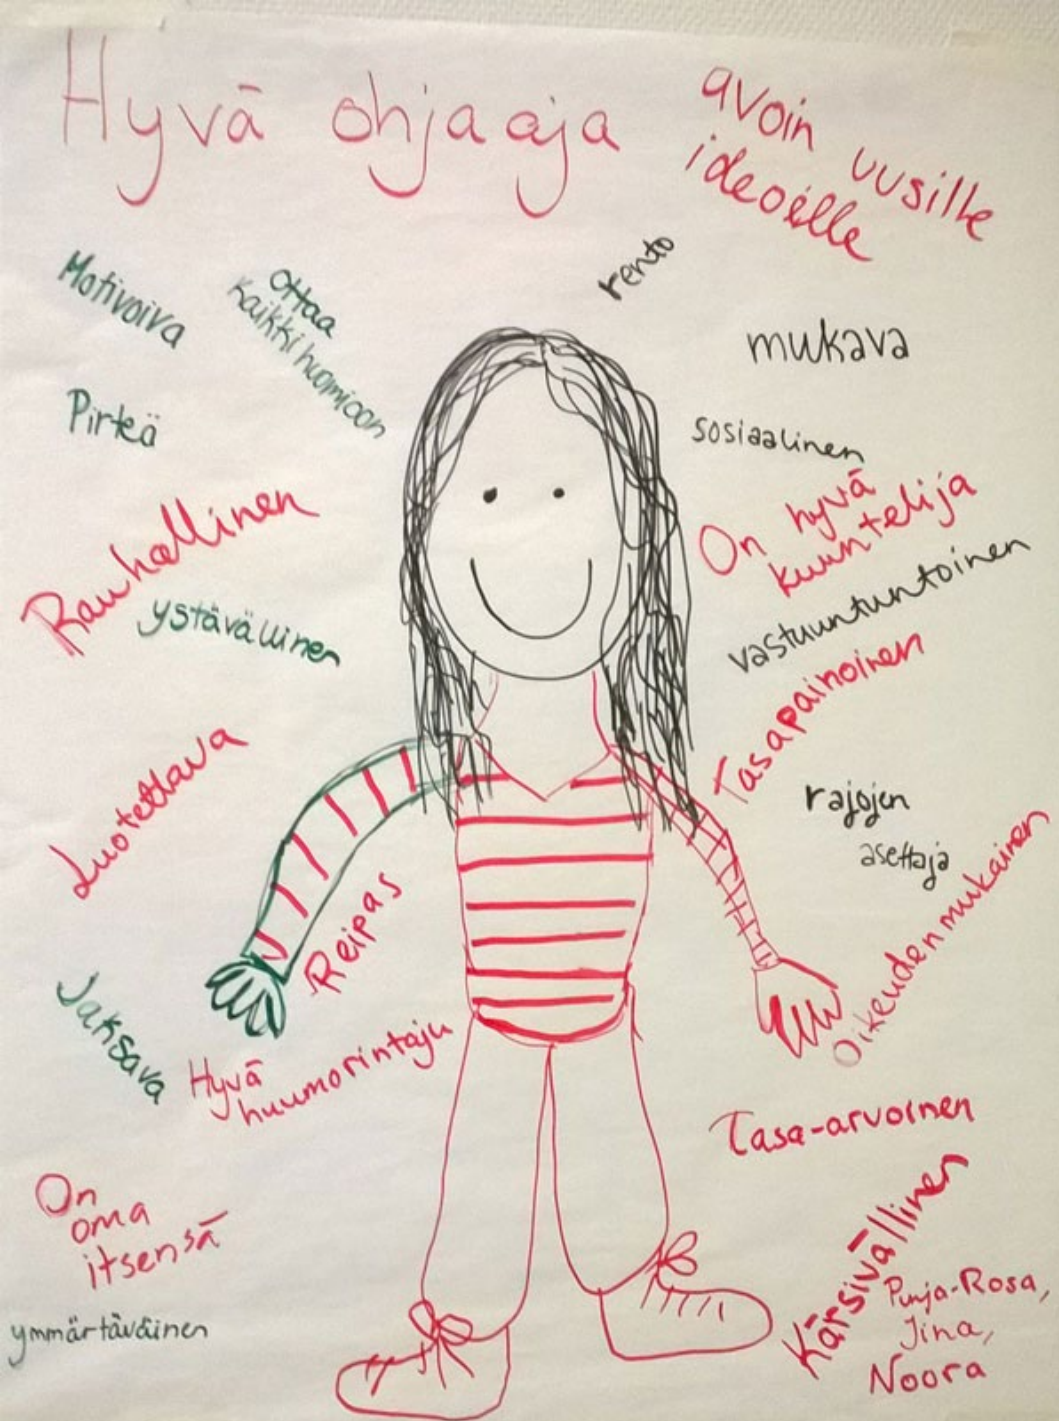 Hyvä ohjaaja
avoin uusille
ideoille
rento
Motivoiva
Ottaa
kaikki huomioon
mukava
Pirteä
sosiaalinen
On hyvä
kuuntelija
Rauhallinen
ystävällinen
vastuuntuntoinen
Tasapainoinen
Luotettava
rajojen
asettaja
Oikeudenmukainen
Reipas
Jaksava
Hyvä
huumorintaju
Tasa-arvoinen
On
oma
itsensä
Kärsivällinen
ymmärtäväinen
Punja-Rosa,
Jina,
Noora